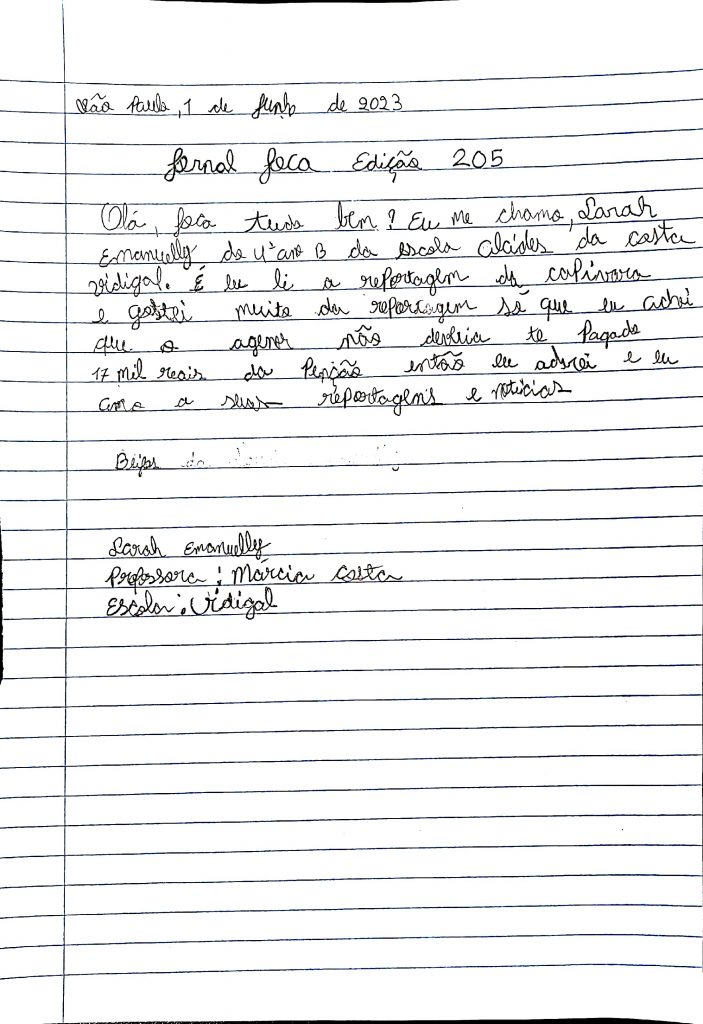 São Paulo, 1 de Junho de 2023
Jornal Joca Edição 205
Olá, joca tudo bem? Eu me chamo, Sarah
Emanuelly do 4º ano B da escola Alcides da costa
vidigal. É eu li a reportagem da capivara
e gostei muito da reportagem só que eu achei
que o agenor não deveria te Pagado
17 mil reais da Penção então eu adorei e eu
amo a suas reportagens e noticias
Beijos da
Sarah Emanuelly
Professora: Márcia Costa
Escola: Vidigal